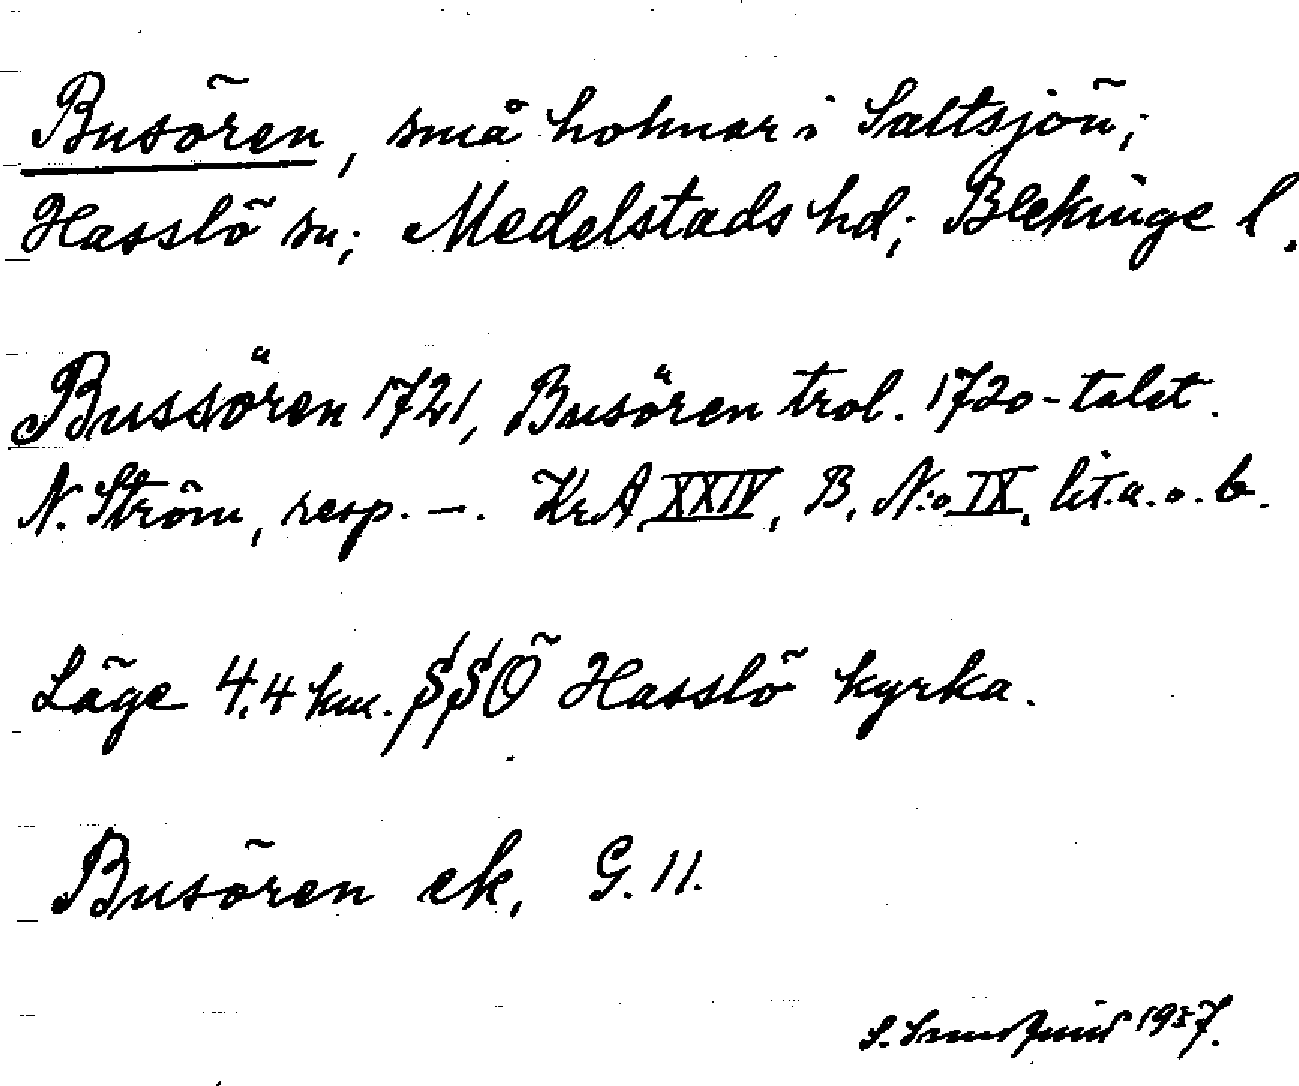 Busören, små holmar i Saltsjön;
Hasslö sn; Medelstads hd; Blekinge l.
Bussören 1721, Busören trol. 1720-talet.
N. Ström, resp. —. KrA XXIV, B. N:o IX, lit. a. o. b.
Läge 4,4 km. SSÖ Hasslö kyrka.
Busören ek, G. 11.
S. 1957.